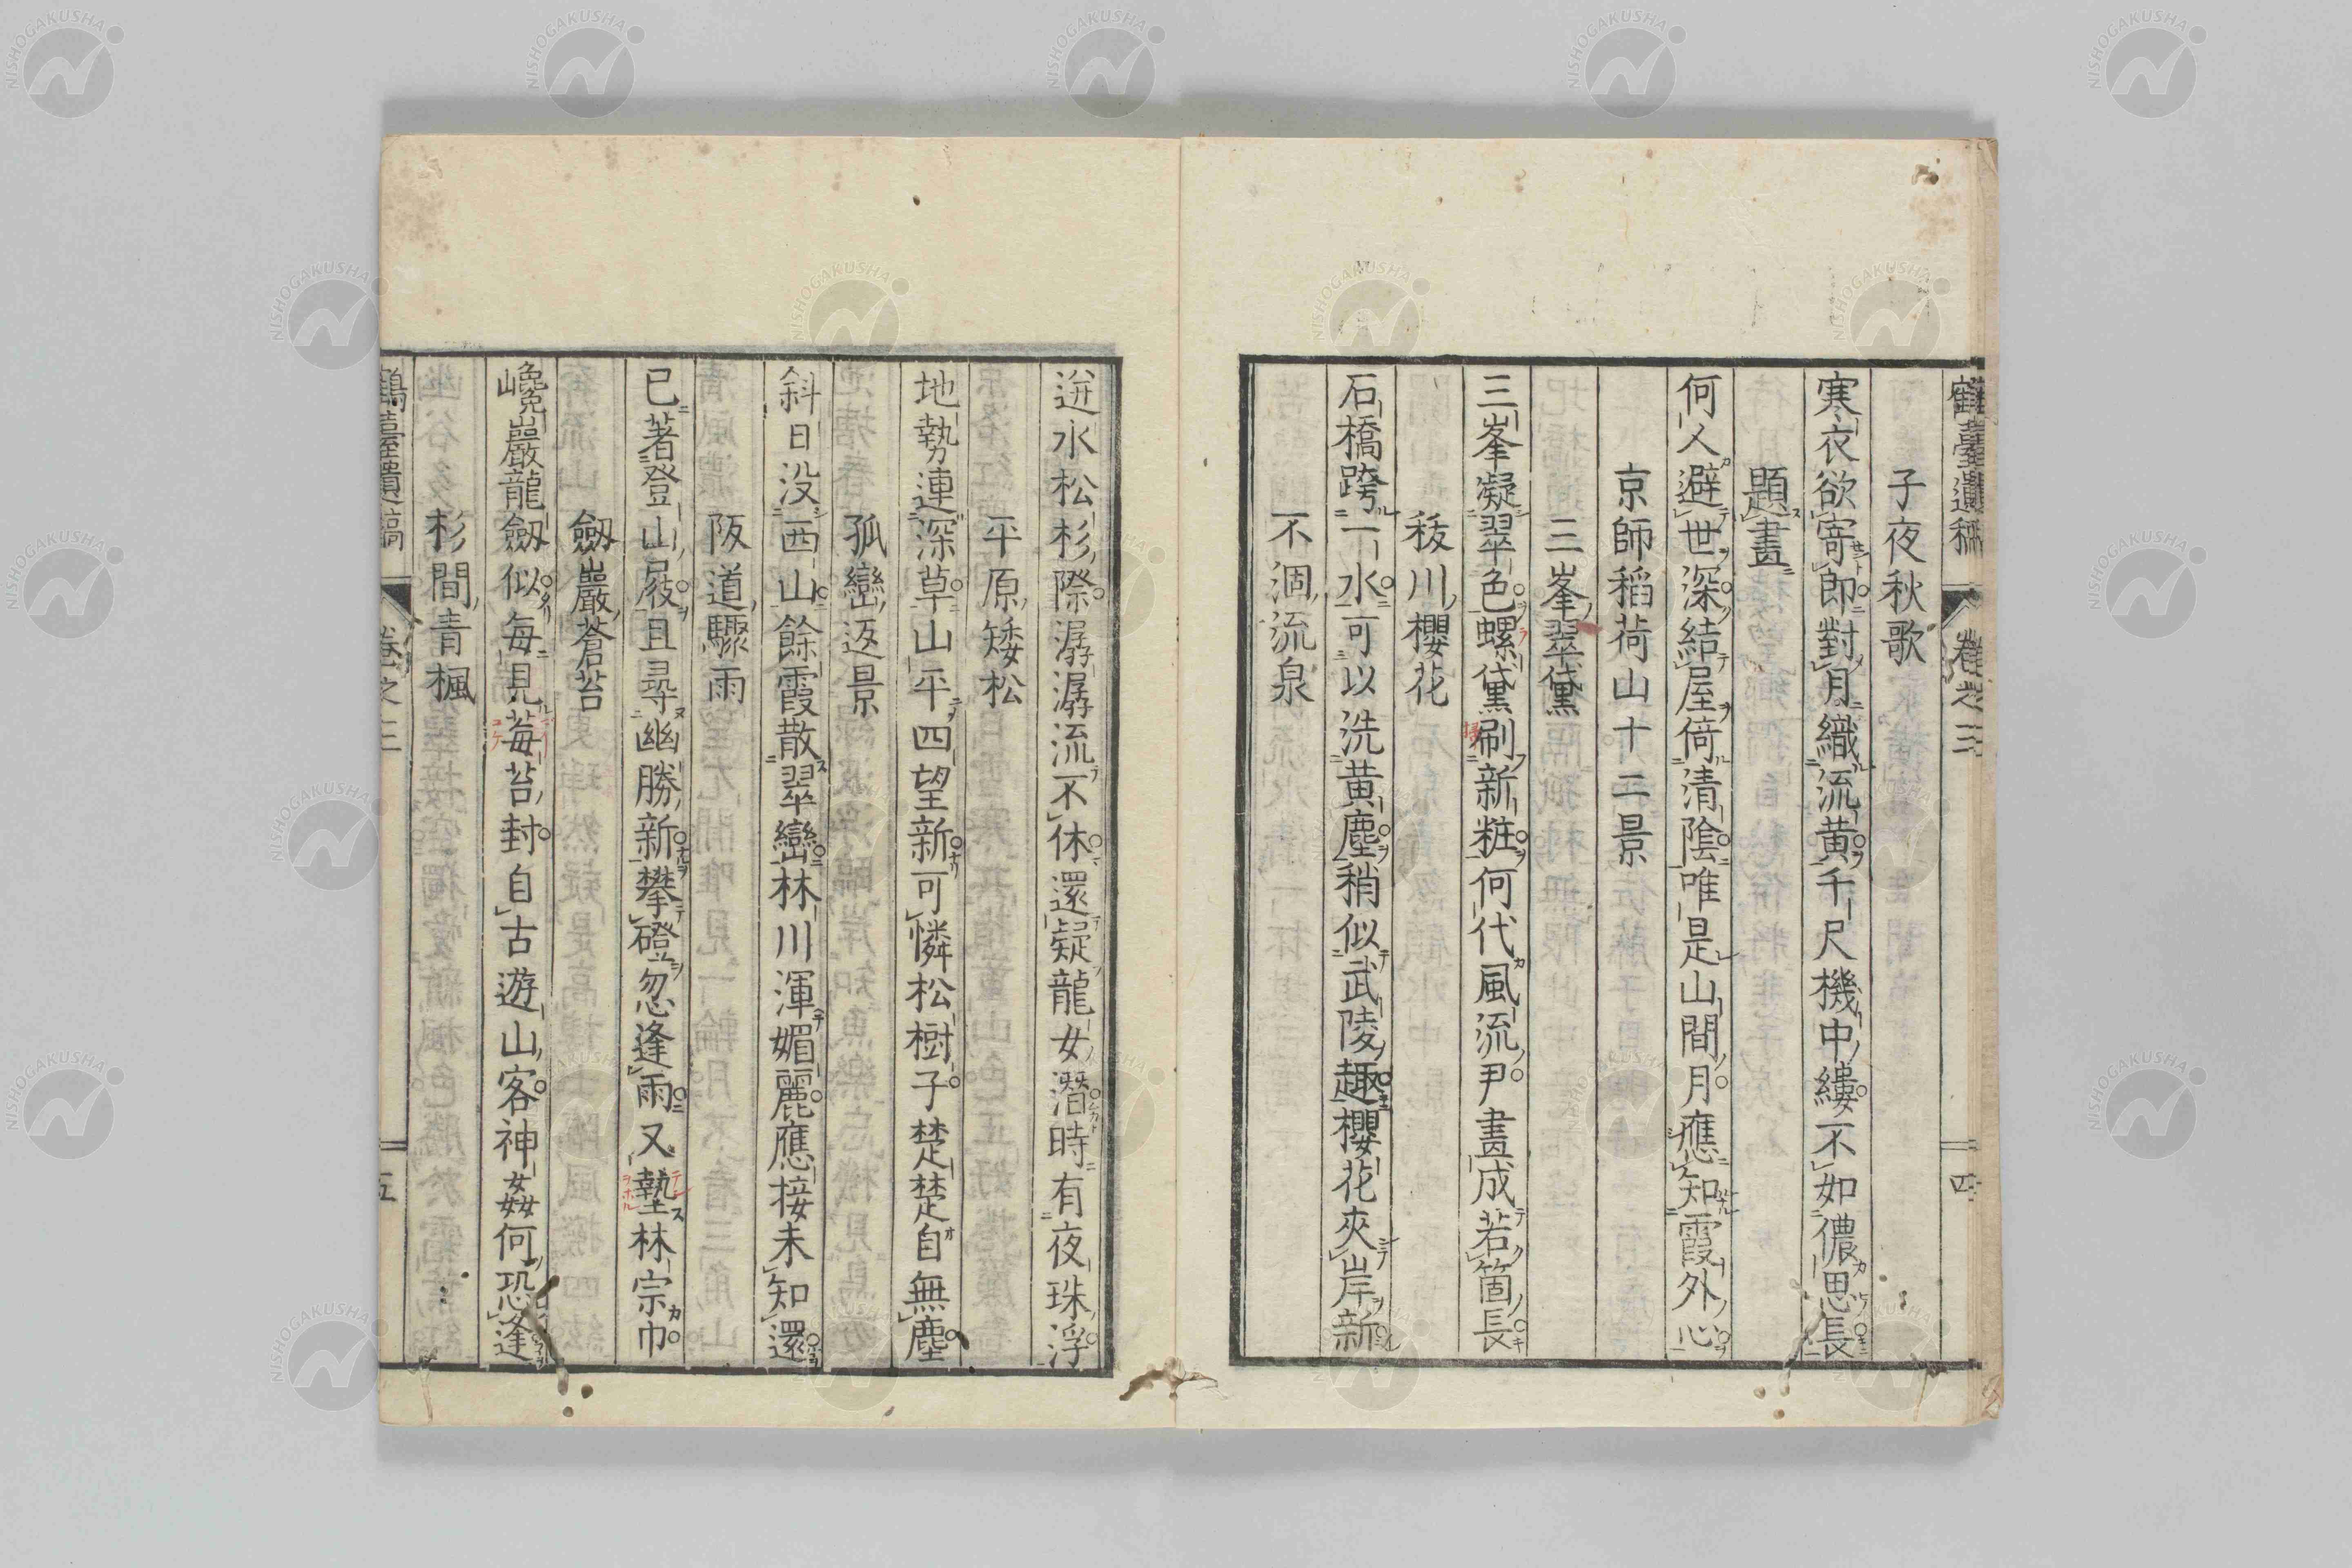 鶴臺遺稿 卷之三 四
子夜秋歌
寒衣欲寄即對月織流黄千尺機中縷不如儂思長
題畫
何人避世深結屋倚清陰唯是山間月應知霞外心
京師稻荷山十二景
三峯翠黛
三峯凝翠色螺黛刷新粧何代風流尹畫成若箇長
秡川櫻花
石橋跨一水可以洗黄塵稍似武陵趣櫻花夾岸新
不涸流泉
迸水松杉際潺潺流不休還疑龍女潛時有夜珠浮
平原矮松
地勢連深草山平四望新可憐松樹子楚楚自無塵
孤巒返景
斜日没西山餘霞散翠巒林川渾媚麗應接未知還
阪道驟雨
已著登山屐且尋幽勝新攀磴忽逢雨又墊林宗巾
劔巖蒼苔
巉巖龍劔似每見莓苔封自古遊山客神姦何恐逢
杉間青楓
鶴臺遺稿 卷之三 五